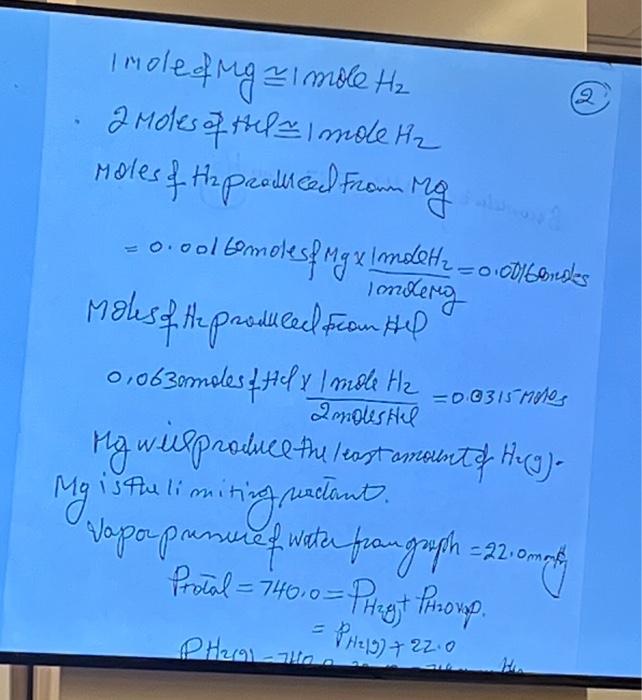 1 Mole of Mg ≅ 1 mole H2
②
2 Moles of HCl ≅ 1 mole H2
Moles of H2 produced From Mg
= 0.00160 moles of Mg x 1 mole H2 / 1 mole Mg = 0.00160 moles
Moles of H2 produced From HCl
0.0630 moles of HCl x 1 mole H2 / 2 moles HCl = 0.0315 Moles
Mg will produce the least amount of H2(g).
Mg is the limiting reactant.
Vapor pressure of water from graph = 22.0 mmHg
PTotal = 740.0 = PH2(g) + PH2O vap.
= PH2(g) + 22.0
PH2(g) = 740.0